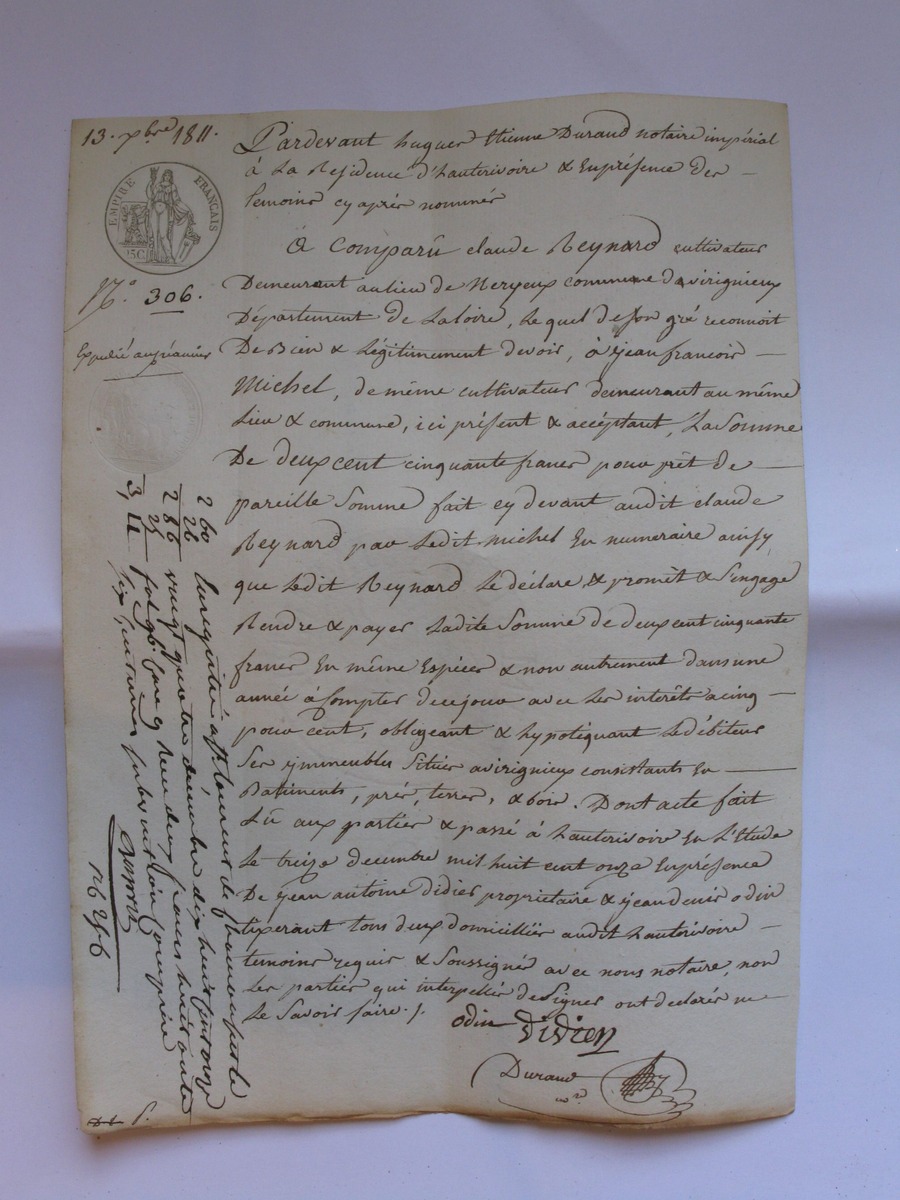 13. xbre 1811.
EMPIRE FRANÇAIS
75C
No. 306.
Expédié au créancier
Pardevant hugues Etienne Durand notaire impérial
à La Residence d'hauterivoire & En présence des
temoins cy après nommés
A Comparû claude Reynard cultivateur
Demeurant au lieu de Neryeux commune de virignieux
Département de La loire, Lequel de son gré reconnoit
De Bien & Légitimement devoir, à jean francois
Michel, de même cultivateur demeurant au même
Lieu & commune, ici présent & accéptant, La Somme
De deux cent cinquante francs pour prêt de
pareille Somme fait cy devant audit claude
Reynard par Ledit Michel En numeraire ainsy
que Ledit Reynard Le déclare & promet & S'engage
Rendre & payer Ladite Somme de deux cent cinquante
francs En même Espéces & non autrement dans une
année à Compter de ce jour avec Les interêts a cinq
pour cent, obligeant & hypotiquant Le débiteur
Ses ymmeubles Situés a virignieux consistants En
Batiments, prés, terres, & bois. Dont acte fait
Lû aux parties & passé à hauterivoire En L'Etude
Le treize decembre mil huit cent onze En présence
De jean antoine didier proprietaire & jean denis odin
tixerant tous deux domiciliés audit hauterivoire
temoins requis & Soussignés avec nous notaire, non
Les parties qui interpellés de Signer ont declarés ne
Le Savoir faire.
odin Didier
Durand
nre
2 60
26
2 86
25
3, 11
Enregistré à St Laurent de Chamousset le
vingt quatre décembre dix huit cent onze
reçu deux francs huit
six centimes subvention comprise